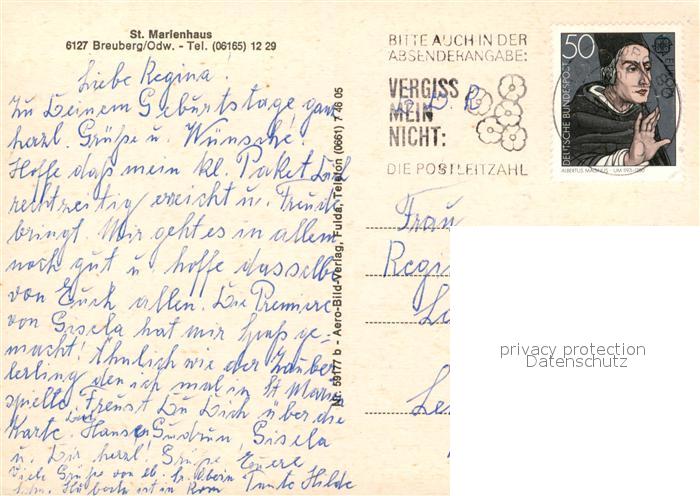 St. Marienhaus
6127 Breuberg/Odw. - Tel. (06165) 12 29
Liebe Regina!
Zu Deinem Geburtstage ganz
herzl. Grüße u. Wünsche!
Hoffe daß mein kl. Paket Dich
rechtzeitig erreicht u. Freude
bringt. Mir geht es in allem
noch gut u. hoffe dasselbe
von Euch allen. Die Premiere
von Gisela hat mir Spaß ge-
macht! Ähnlich wie der Zauber
lerling den ich mal in St Marien
spielte. Freust Du Dich über die
Karte. Hans Gudrun, Gisela
u. Dir herzl. Grüße Euere
Tante Hilde
Viele Grüße von
ist in Rom
Nr. 59177 b - Aero-Bild-Verlag, Fulda, Telefon (0661) 7 46 05
BITTE AUCH IN DER
ABSENDERANGABE:
VERGISS
MEIN
NICHT:
DIE POSTLEITZAHL
50
DEUTSCHE BUNDESPOST
EUROPA
ALBERTUS MAGNUS · UM 1193-1280
Frau
Regin
privacy protection
Datenschutz